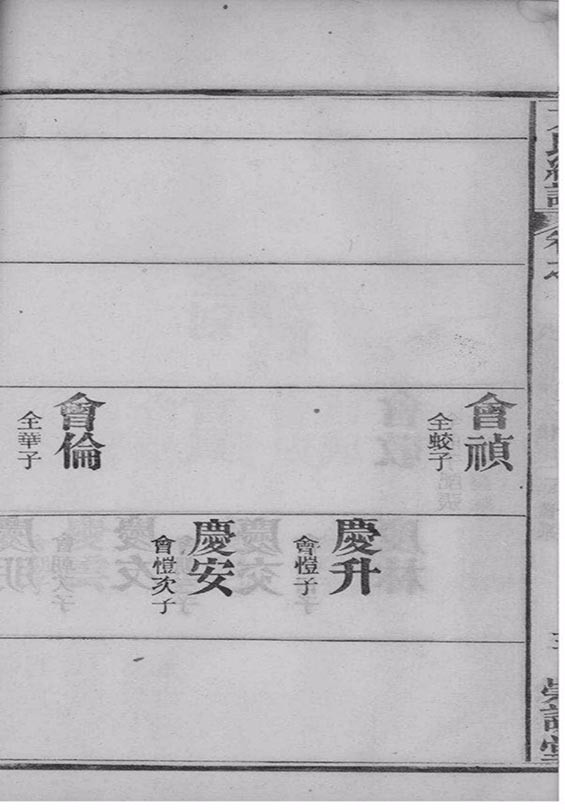 會禎
全蛟子
慶升
會愷子
慶安
會愷次子
會倫
全華子